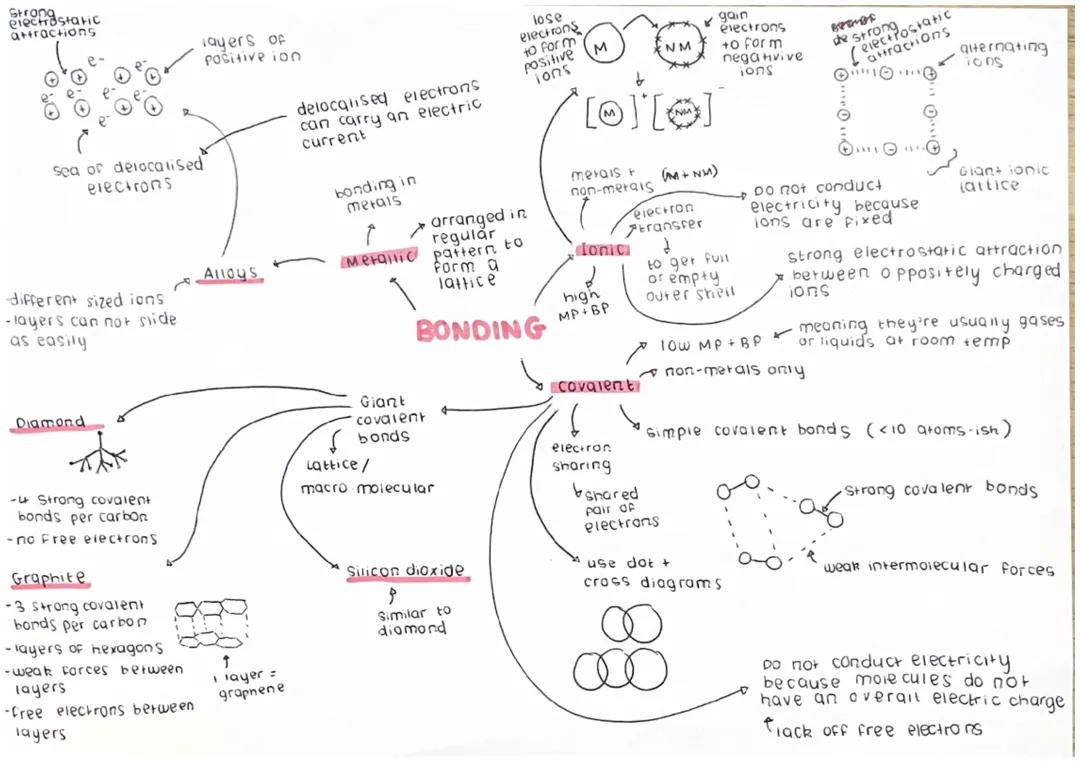 strong
electrostatic
attractions
layers of
positive ion
e-
e-
e-
e-
e-
e-
e-
sea of delocalised
electrons
delocalised electrons
can carry an electric
current
bonding in
metals
Metallic
arranged in
regular
pattern to
form a
lattice
Alloys
-different sized ions
-layers can not slide
as easily
BONDING
lose
electrons
to form
positive
ions
M
NM
gain
electrons
to form
negative
ions
[M]+ [NM]-
de strong
electrostatic
attractions
alternating
ions
Giant ionic
lattice
metals +
non-metals (M+NM)
electron
transfer
to get full
or empty
outer shell
Do not conduct
electricity because
ions are fixed
Ionic
high
MP+BP
strong electrostatic attraction
between oppositely charged
ions
low MP+BP
meaning they're usually gases
or liquids at room temp
non-metals only
covalent
simple covalent bonds (<10 atoms-ish)
electron
sharing
shared
pair of
electrons
use dot +
cross diagrams
strong covalent bonds
weak intermolecular forces
Do not conduct electricity
because molecules do not
have an overall electric charge
lack off free electrons
Giant
covalent
bonds
Lattice/
macro molecular
Diamond
-4 strong covalent
bonds per carbon
-no free electrons
Graphite
-3 strong covalent
bonds per carbon
-layers of hexagons
-weak forces between
layers
-free electrons between
layers
1 layer =
graphene
Silicon dioxide
similar to
diamond